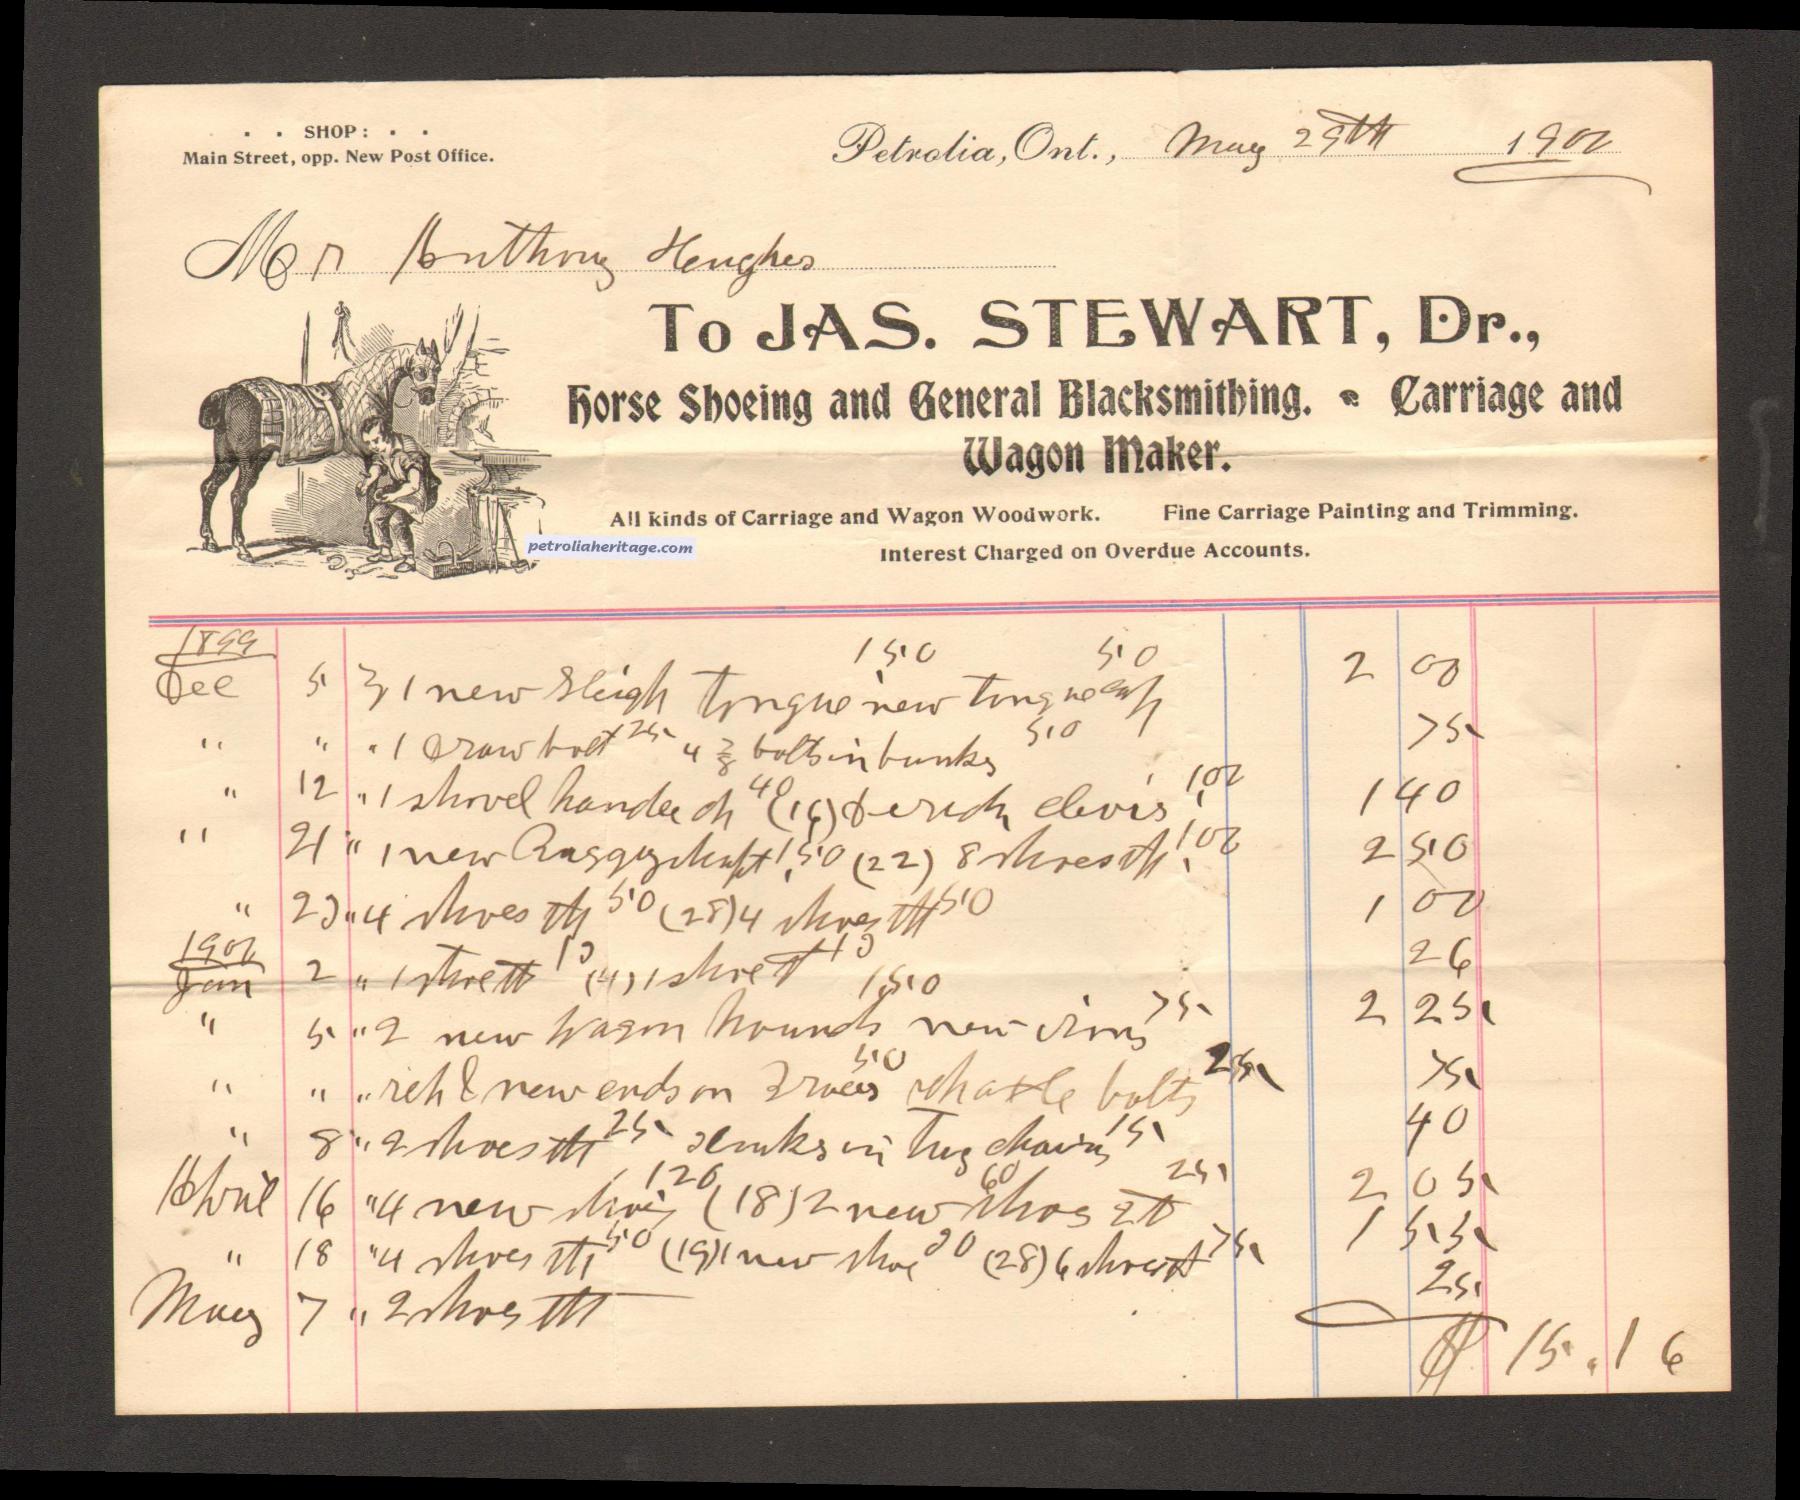 . . SHOP: . .
Main Street, opp. New Post Office.
Petrolia, Ont., May 29th 1900
Mr Anthony Hughes
To JAS. STEWART, Dr.,
Horse Shoeing and General Blacksmithing. Carriage and
Wagon Maker.
All kinds of Carriage and Wagon Woodwork. Fine Carriage Painting and Trimming.
petroliaheritage.com
Interest Charged on Overdue Accounts.
1899
Dec 5 1 new Sleigh tongue 150 new tongue 50 2 00
" " " 1 Draw bolt 25 4 3/8 bolts in bunks 50 75
" 12 " 1 shovel handle 40 (16) clevis 100 1 40
" 21 " 1 new Buggy shaft 150 (22) 8 shoes 100 2 50
" 23 " 4 shoes 50 (28) 4 shoes 50 1 00
1900
Jan 2 " 1 shoe 13 (4) 1 shoe 13 26
" 5 " 2 new Wagon hounds 150 new 75 2 25
" " " new ends on 50 axle bolts 25 75
" 8 " 2 shoes 25 links in Tug chains 15 40
April 16 " 4 new shoes 120 (18) 2 new shoes 60 2 25 2 05
" 18 " 4 shoes 50 (19) 1 new shoe 30 (28) 6 shoes 75 1 55
May 7 " 2 shoes 25
$ 15.16